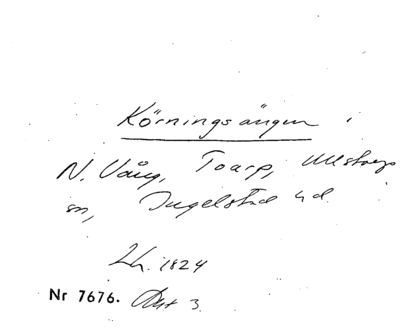 Körningsängen i
N. Vång, Toarp, Ullstorps
sn, Ingelstad hd.
Lh. 1824
Nr 7676. Akt 3.